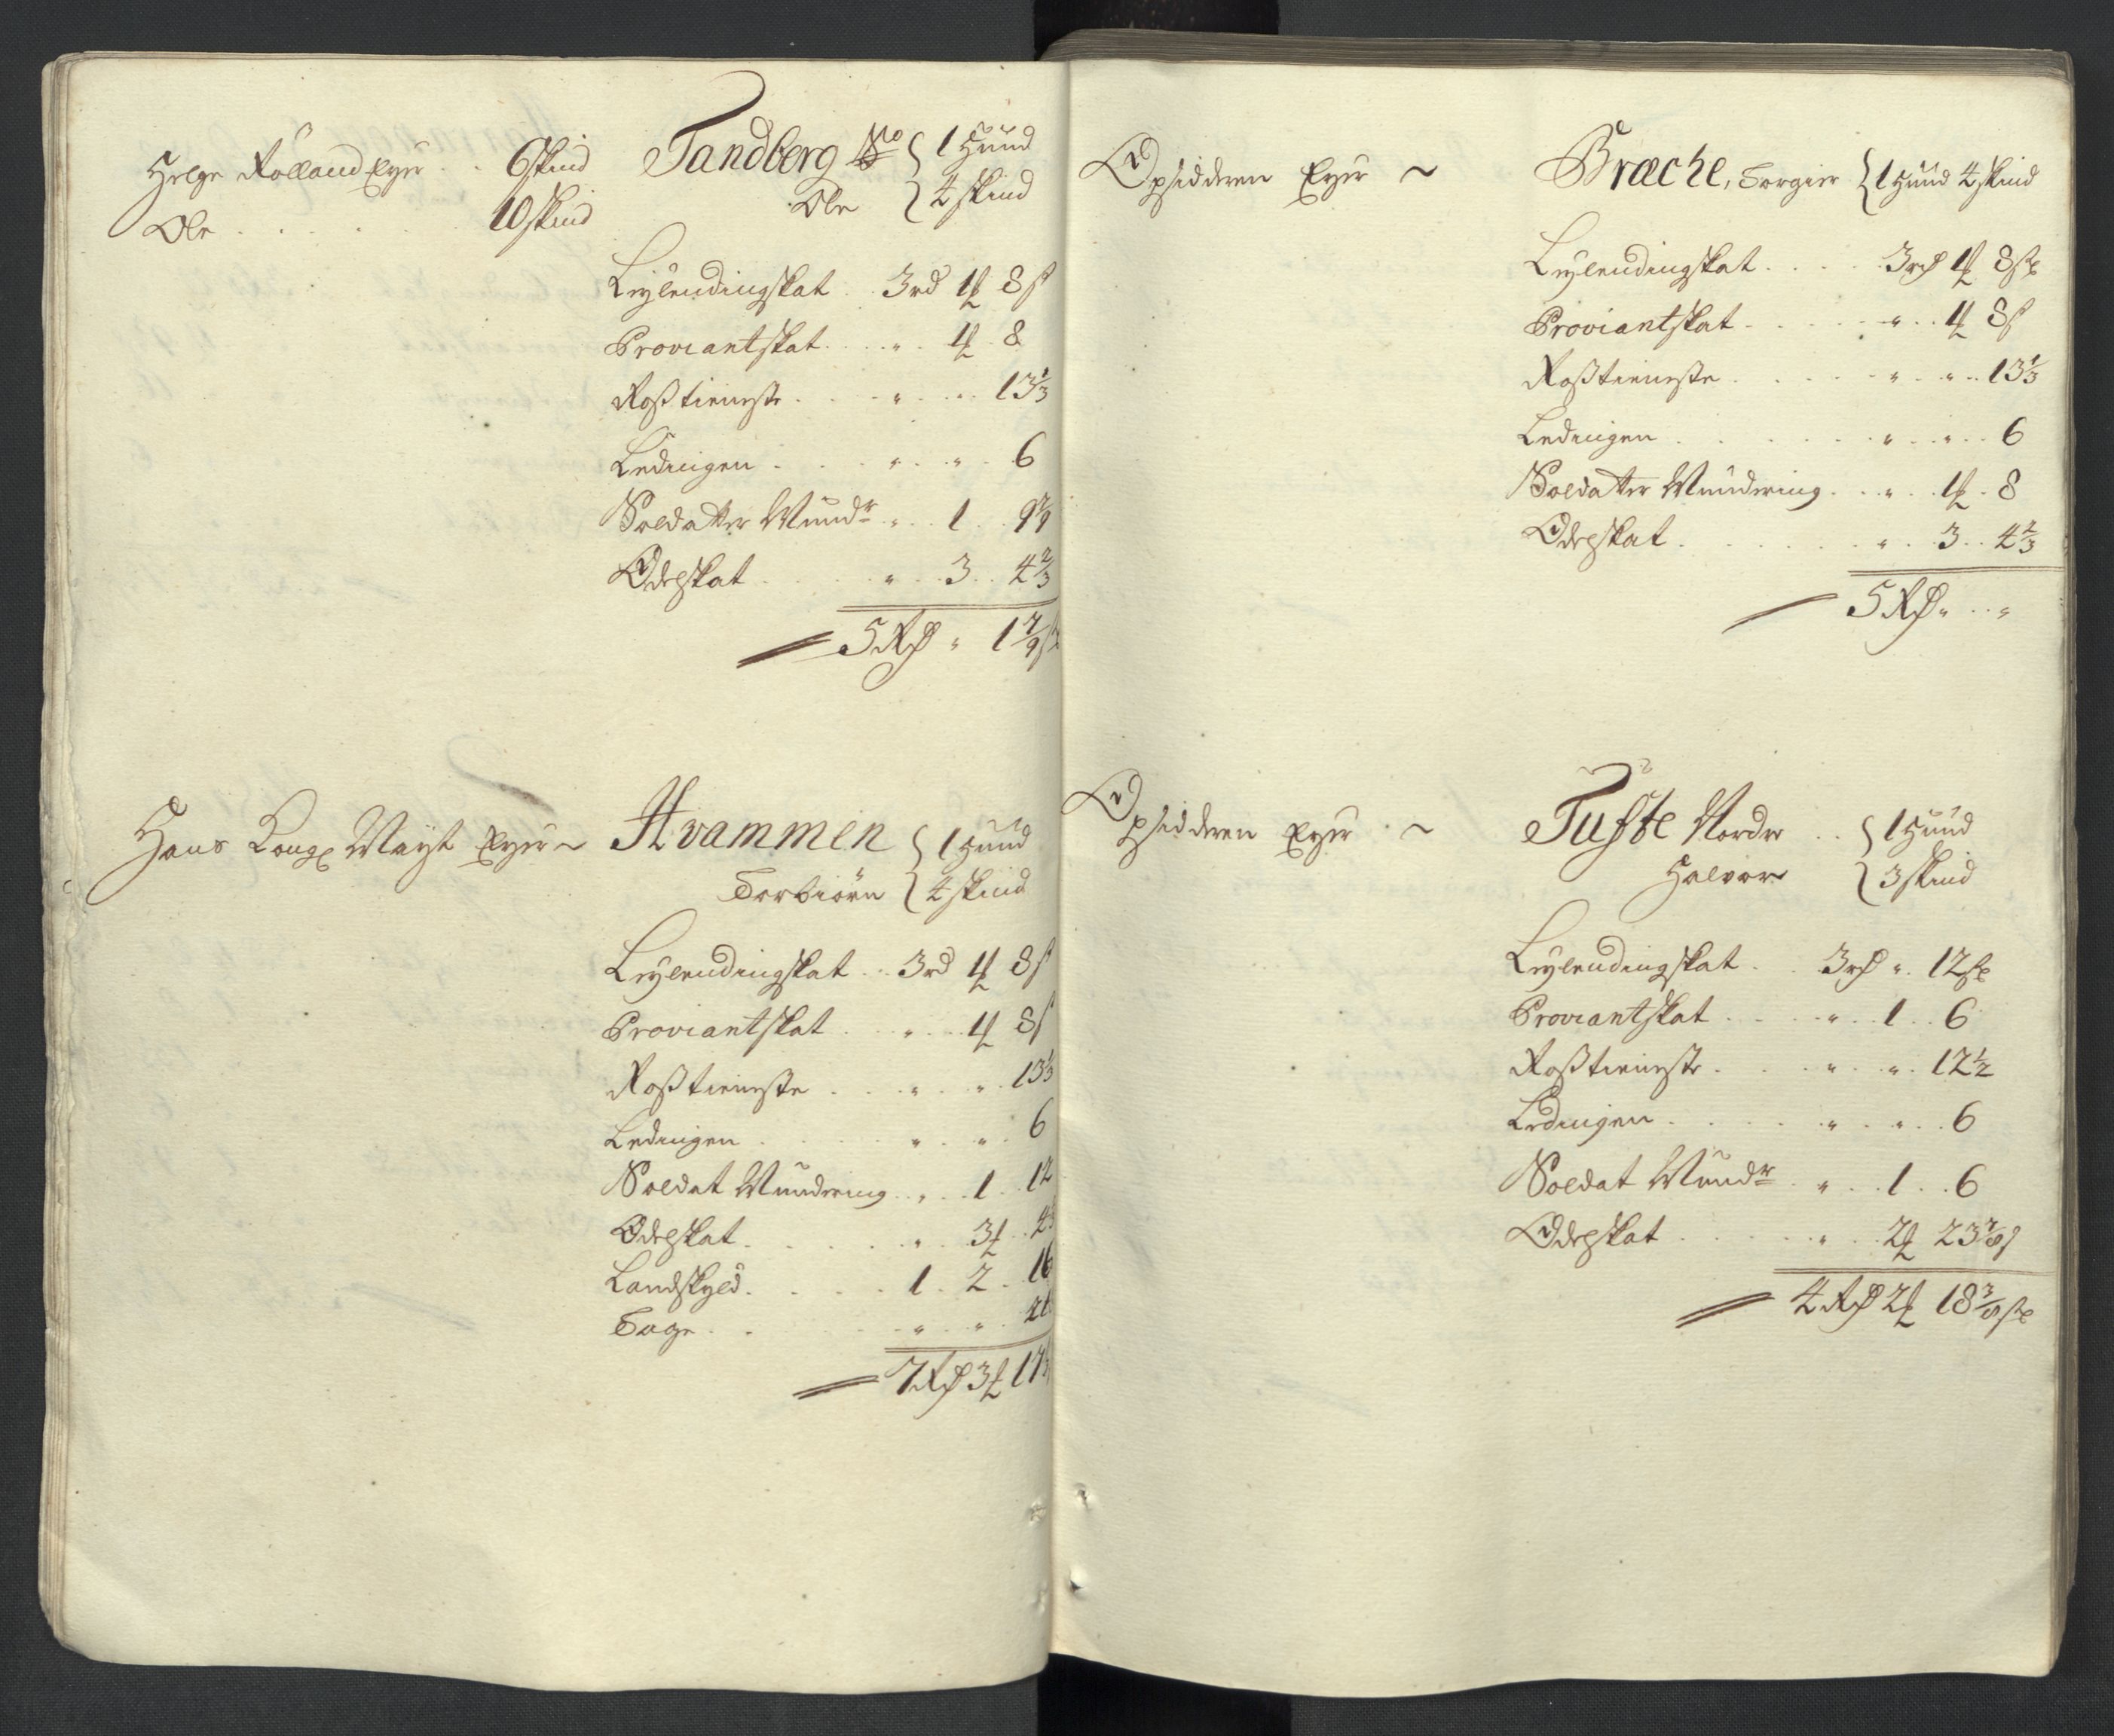 Helge Rolland Eyer . . 6 skind
Ole . . . . . 10 skind
Tandberg { 1 Huud
Ole { 4 skind
Leylendingskat . . 3 rd 1 8 s
Proviantskat . . . „ . 1 . 8
Rosstieneste . . . „ . . . 13 1/3
Ledingen . . . „ . „ . 6
Soldatter Mundr . „ . . 1 . . 9 7/9
Odelskat . . . „ . . 3 . . 4 2/3
5 Rd „ 1 7/9 s
Hans Eyer ~
Hvammen { 1 Huud
Torbiörn { 4 skind
Leylendingskat . . 3 rd 1 8 s
Proviantskat . . „ . . 1 8 s
Rosstieneste . . . „ . „ . 13 1/3
Ledingen . . . „ . „ . 6
Soldat Mundering . „ . . 1 . . 12
Odelskat . . . „ . . 3 . . 4
Landskyld . . . . 1 . 2 . 16
Tage . . . „ . „
7 Rd 3 17
Opsidderen Eyer ~
Bræche, Torgier { 1 Huud 4 skind
Leylendingskat . . . . 3 rd 1 8 s
Proviantskat . . . . „ . . 1 8 s
Rosstieneste . . . . „ . „ . . 13 1/3
Ledingen . . . . . „ . „ . . 6
Soldatter Mundering . . „ . . 1 . 8
Odelskat . . . . . „ . . 3 . . 4 2/3
5 Rd „ . . „
Opsidderen Eyer . ~
Tufte Nordre . . { 1 Huud
Halvor { 3 skind
Leylendingskat . . 3 rd „ . 12 s
Proviantskat . . . „ . . 1 . . 6
Rosstieneste . . . „ . „ . 12 1/2
Ledingen . . . . „ . „ . . 6
Soldat Mundr . „ . . 1 . . 6
Odelskat . . . . „ . . 2 23 7/8 s
4 Rd 2 18 3/8 s